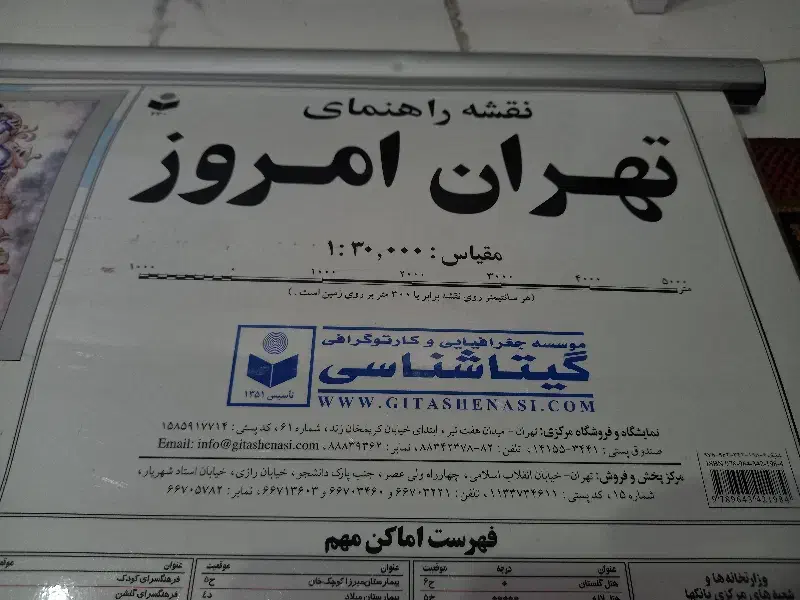 نقشه راهنمای
تهران امروز
مقیاس : ۱:۳۰,۰۰۰
۱۰۰۰ ۰ ۱۰۰۰ ۲۰۰۰ ۳۰۰۰ ۴۰۰۰ ۵۰۰۰ متر
(هر سانتیمتر روی نقشه برابر با ۳۰۰ متر بر روی زمین است.)
موسسه جغرافیایی و کارتوگرافی
گیتاشناسی
تاسیس ۱۳۵۱
WWW.GITASHENASI.COM
نمایشگاه و فروشگاه مرکزی: تهران - میدان هفت تیر، ابتدای خیابان کریمخان زند، شماره ۶۱، کد پستی: ۱۵۸۵۹۱۷۷۱۴
صندوق پستی: ۳۴۴۱-۱۴۱۵۵، تلفن: ۸۲-۸۸۳۴۲۳۷۸، نمابر: ۸۸۸۳۹۳۶۲، Email: info@gitashenasi.com
مرکز پخش و فروش: تهران-خیابان انقلاب اسلامی، چهارراه ولی عصر، جنب پارک دانشجو، خیابان رازی، خیابان استاد شهریار،
شماره ۱۵، کد پستی: ۱۱۳۳۷۳۴۶۱۱، تلفن: ۶۶۷۰۳۲۲۱ و ۶۶۷۰۳۴۶۰ و ۶۶۷۱۳۶۰۳، نمابر: ۶۶۷۰۵۷۸۲
9789643421984
فهرست اماکن مهم
عنوان موقعیت
عنوان درجه موقعیت
وزارتخانه‌ها و
شعبه‌های مرکزی بانکها
هتل گلستان * ح۶
بیمارستان میرزا کوچک خان ح۵
فرهنگسرای کودک
بیمارستان میلاد د۴
فرهنگسرای گلشن